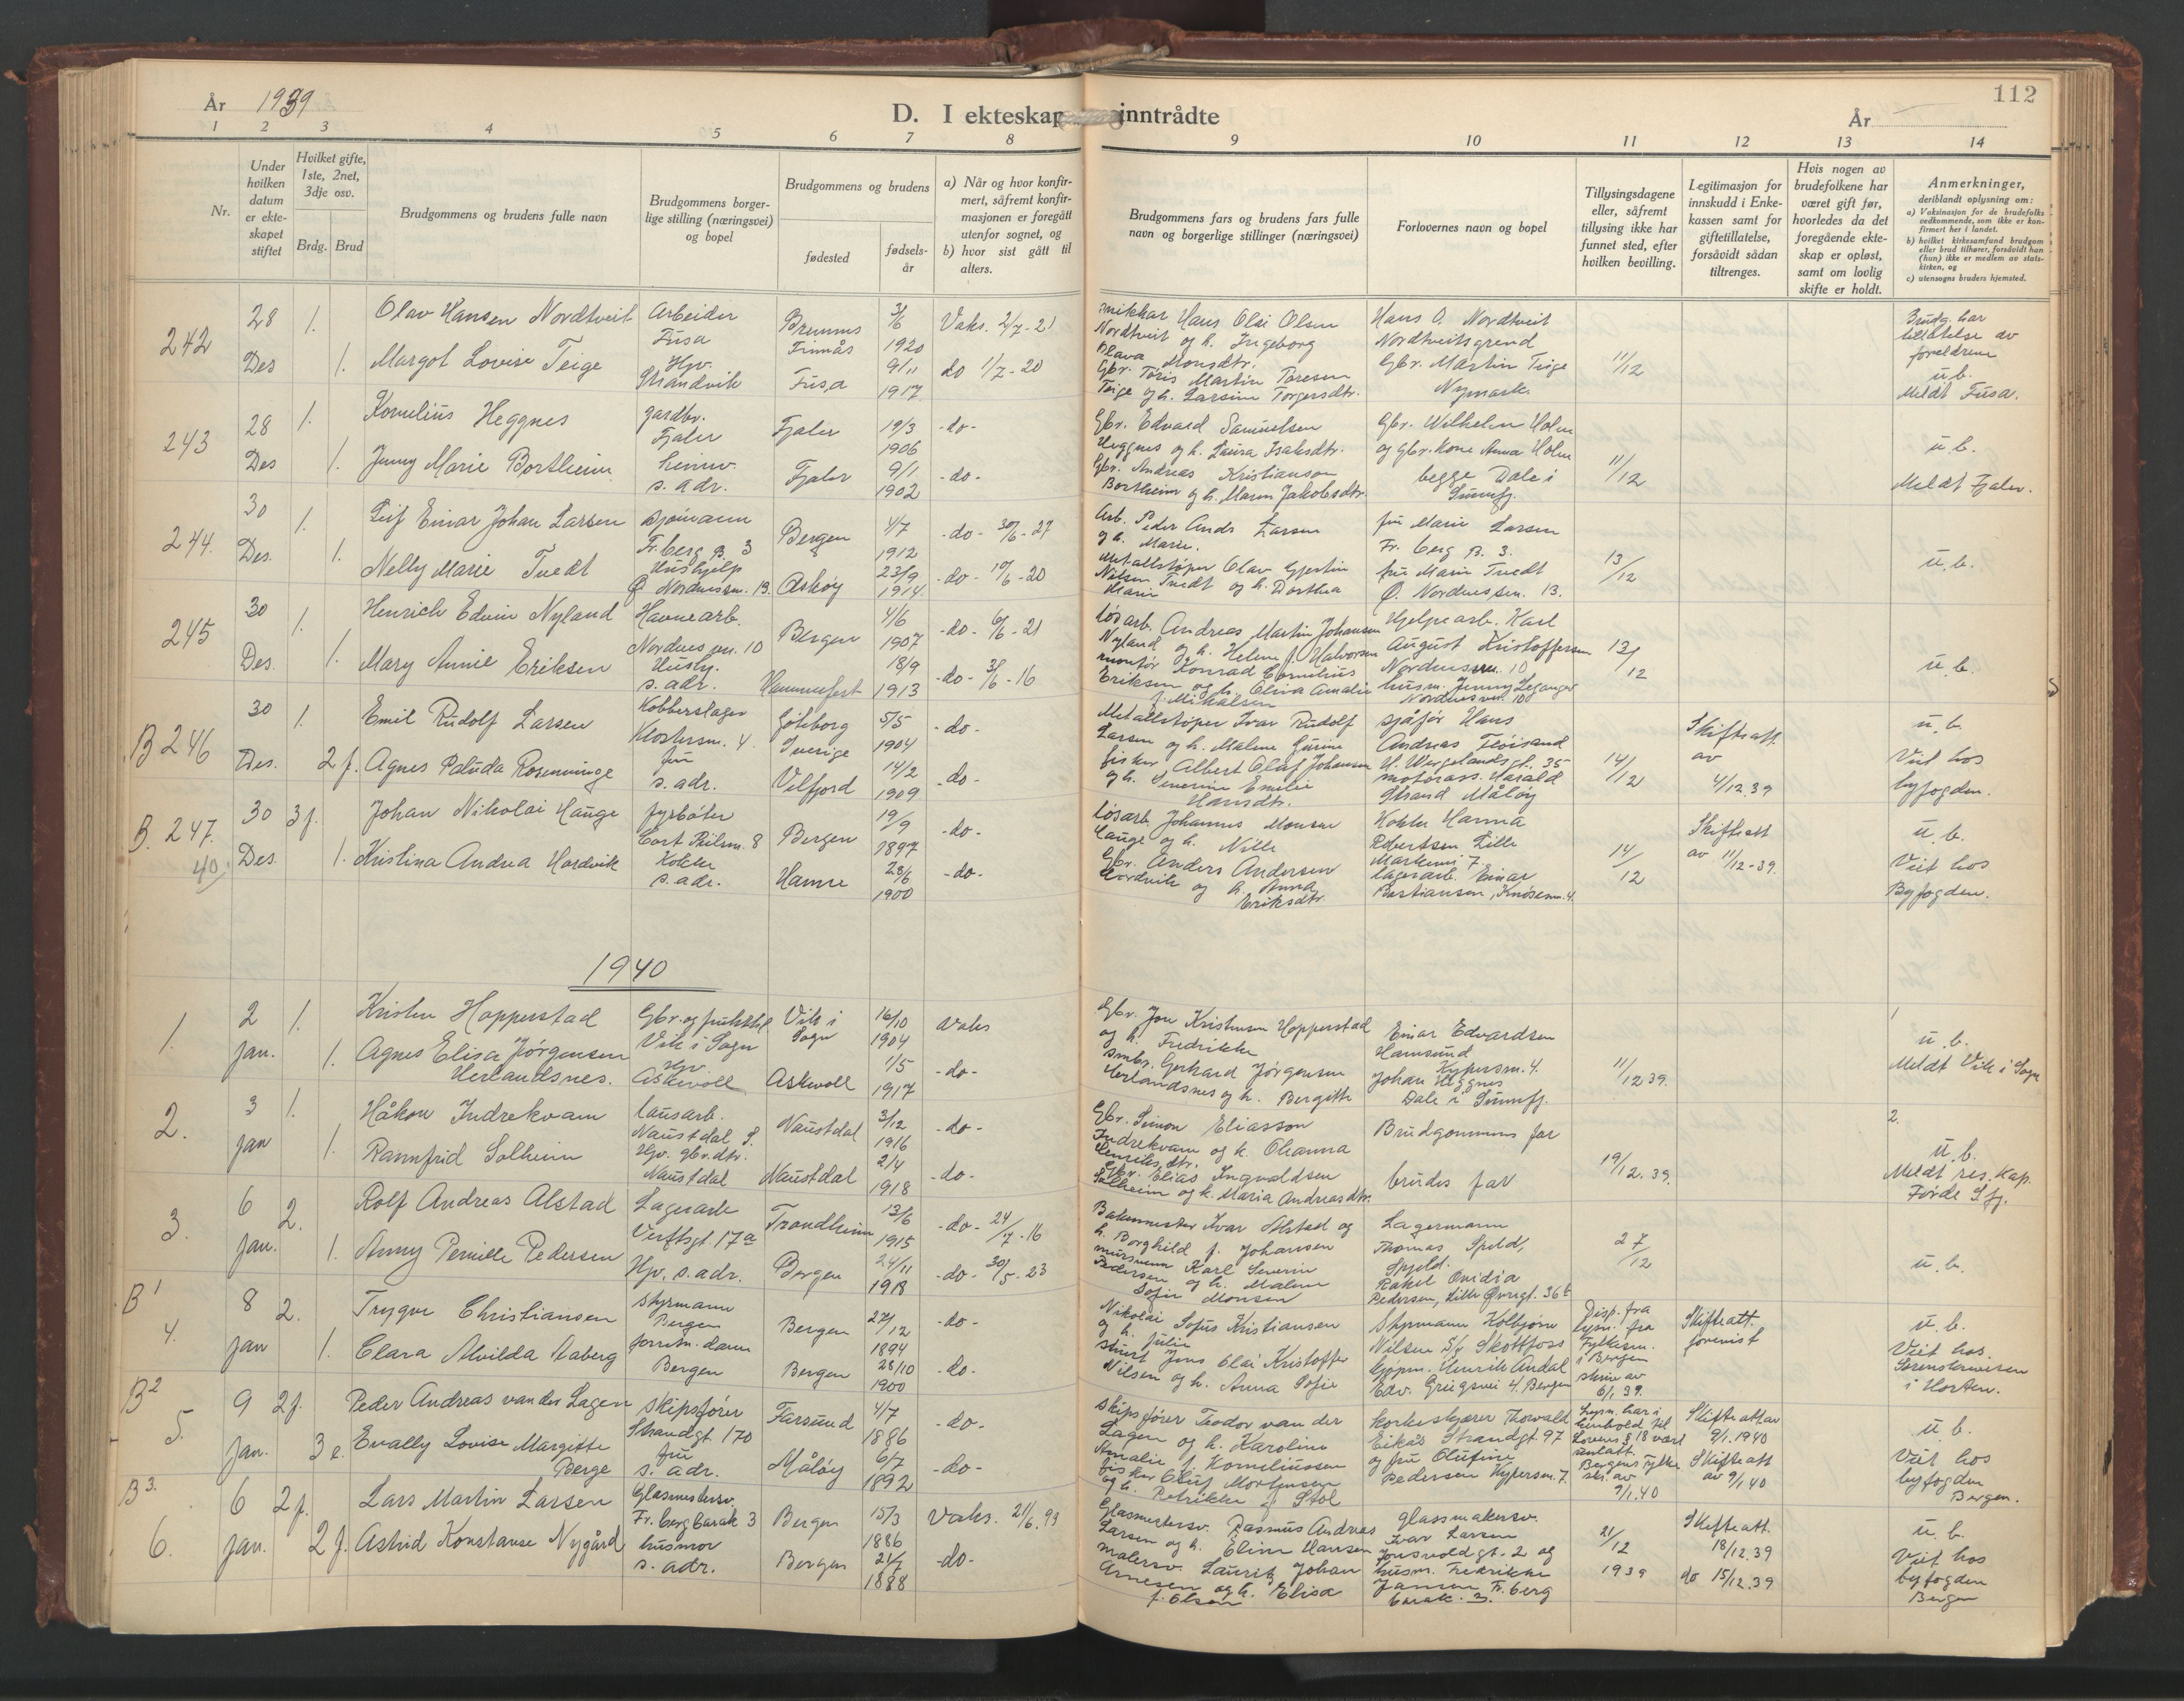 112
År 1939
D. I ekteskap inntrådte
År
1 2 3 4 5 6 7 8 9 10 11 12 13 14
Nr.
Under hvilken datum er ekteskapet stiftet
Hvilket gifte, 1ste, 2net, 3dje osv.
Brdg. Brud
Brudgommens og brudens fulle navn
Brudgommens borgerlige stilling (næringsvei) og bopel
Brudgommens og brudens
fødested
fødselsår
a) Når og hvor konfirmert, såfremt konfirmasjonen er foregått utenfor sognet, og
b) hvor sist gått til alters.
Brudgommens fars og brudens fars fulle navn og borgerlige stillinger (næringsvei)
Forlovernes navn og bopel
Tillysingsdagene eller, såfremt tillysing ikke har funnet sted, efter hvilken bevilling.
Legitimasjon for innskudd i Enkekassen samt for giftetillatelse, forsåvidt sådan tiltrenges.
Hvis nogen av brudefolkene har været gift før, hvorledes da det foregående ekteskap er opløst, samt om lovlig skifte er holdt.
Anmerkninger, deriblandt oplysning om:
a) Vaksinasjon for de brudefolks vedkommende, som ikke er konfirmert her i landet.
b) hvilket kirkesamfund brudgom eller brud tilhører, forsåvidt han (hun) ikke er medlem av statskirken, og
c) utensogns bruders hjemsted.
242
28 Des
1. Olav Hansen Nordtveit
Arbeider Fusa
Bremnes Finnås
3/6 1920
Vaks. 2/7-21
1. Margot Lovise Teige
Hpv. Strandvik
Fusa
9/11 1917
do 1/7-20
Hans Olai Olsen
Nordtveit og h. Ingeborg
Olava Monsdtr.
Gbr. Toris Martin Toresen
Teige og h. Larsine Torgersdtr.
Hans O. Nordtveit
Nordtveitsgrend
Gbr. Martin Teige
Nymark.
11/12
Brudg. har
tillatelse av
foreldrene
u.b.
Meldt Fusa.
243
28 Des
1. Kornelius Heggnes
gardbr. Fjaler
Fjaler
19/3 1906
-do-
1. Jenny Marie Bortheim
heimv. s. adr.
Fjaler
9/1 1902
-do-
Gbr. Edvard Samuelsen
Heggnes og h. Laura Isaksdtr.
Gbr. Andreas Kristianson
Bortheim og h. Maren Jakobsdtr.
Gbr. Wilhelm Holm
og gbr. kone Anna Holm
begge Dale i
Sunnfj.
11/12
u.b.
Meldt Fjaler.
244.
30 Des.
1. Leif Einar Johan Larsen
sjømann Fr.berg B. 3
Bergen
4/7 1912
-do- 30/6-27
1. Nelly Marie Tvedt
Hushjelp Ø. Nordnessm. 13.
Askøy
23/9 1914
-do- 10/6-20
Arb. Peder Andr Larsen
og h. Marie.
Metallstøper Olav Gjertin
Nilsen Tvedt og h. Dorthea
Marie
fru Marie Larsen
Fr. berg B. 3.
fru Marie Tvedt
Ø. Nordnessm. 13.
13/12
u.b.
245
30 Des.
1. Henrich Edvin Nyland
Havnearb. Nordnesvn. 10
Bergen
4/6 1907
-do- 6/6-21
1. Mary Annie Eriksen
Husbg. s. adr.
Hammerfest
18/9 1913
-do- 3/6-16
Løsarb. Andreas Martin Johansen
Nyland og h. Helene f. Halvorsen
montør Konrad Cornelius
Eriksen og h. Olina Amalie
f. Mikalsen
Hjelpearb. Karl
August Kristoffersen
Nordnesvn. 10
husm. Jenny Leganger
Nordnesvn. 100
13/12
u.b.
B 246
30 Des.
1. Emil Rudolf Larsen
Kobberslager Klostersm. 4.
Gøteborg Sverige
5/5 1904
-do-
2 f. Agnes Paluda Rosenvinge
fru s. adr.
Velfjord
14/2 1909
-do-
Metallstøper Ivar Rudolf
Larsen og h. Malene Gurine
fisker Albert Olaf Johansen
og h. Severine Emilie
Hansdtr.
sjåfør Hans
Andreas Fløisand
H. Wergelandsgt. 35
motorass. Harald
Strand Måløy
14/12
Skifteatt. av 4/12.39
u.b.
Viet hos
byfogden.
B. 247.
40
30 Des.
3 f. Johan Nikolai Hauge
fyrbøter Cort Piilsm. 8
Bergen
19/9 1897
-do-
1. Kristina Andrea Hordvik
Kokke s. adr.
Hamre
28/6 1900
-do-
Løsarb. Johannes Monsen
Hauge og h. Nille
Gbr. Anders Andersen
Hordvik og h. Anna
Eriksdtr.
Kokke Hanna
Robertsen Lille
Markevei 7
lagerarb. Einar
Bastiansen, Knøsesm. 4.
14/12
Skifteatt av 11/12-39.
u.b.
Viet hos
Byfogden.
1940
1.
2 jan.
1. Kristen Hopperstad
Gbr. og frukthdl Vik i Sogn
Vik i Sogn
16/10 1904
Vaks
1. Agnes Elisa Jørgensen Herlandsnes.
Hpv Askvoll
Askvoll
1/5 1917
-do-
Gbr. Jon Kristensen Hopperstad
og h. Fredrikke
smbr. Gerhard Jørgensen
Herlandsnes og h. Bergitte
Einar Edvardsen
Hamsund
Kypersm. 4.
Johan Heggnes
Dale i Sunnfj.
11/12 39.
1
u.b.
Meldt Vik i Sogn
2.
3 jan
1. Håkon Indrekvam
lausarb. Naustdal S.
Naustdal
3/12 1916
-do-
1. Rannfrid Solheim
Hpv. gbr.dtr. Naustdal
Naustdal
2/4 1918
-do-
Gbr. Simon Eliasson
Indrekvam og h. Oleanna
Henriksdtr.
Gbr. Elias Ingvaldsen
Solheim og h. Maria Andreasdtr.
Brudgommens far
brudes far
19/12.39.
2.
u.b.
Meldt res. kap.
Førde S.fj.
3.
6 jan.
2. Rolf Andreas Alstad
Lagerarb Verftsgt. 17a
Trondheim
13/6 1915
-do- 24/7-16
1. Anny Pernille Pedersen
Hpv. s. adr.
Bergen
24/11 1918
-do- 30/5-23
Bakermester Ivar Alstad og
h. Borghild f. Johansen
mursvenn Karl Severin
Pedersen og h. Malene
Sofie Monsen
Lagermann
Thomas Speld,
Spjeld.
Rakel Ovidia
Pedersen, Lille Øvregt. 36b
27/12
u.b.
B 1
4.
8 jan
2. Trygve Christiansen
styrmann Bergen
Bergen
27/12 1894
-do-
1. Clara Alvilda Aaberg
forretn. dame Bergen
Bergen
28/10 1900
-do-
Nikolai Sofus Kristiansen
og h. Julie
Jens Olai Kristoffer
Nilsen og h. Anna Sofie
Styrmann Kolbjørn
Nilsen D/s Skottfoss
kjøpm. Henrik Andal
Edv. Griegsvei 4. Bergen
Disp. fra
lysn. fra
Fylkesm.
i Bergen
skriv av
6/1 39.
Skifteatt. forevist
u.b.
Viet hos
Sorenskriveren
i Horten.
B 2
5.
9 jan.
2 f. Peder Andreas van der Lagen
skipsfører Strandgt. 170
Farsund
4/7 1886
-do-
3 e. Evally Lovise Margitte Berge
fru s. adr.
Måløy
6/7 1892
-do-
Skipsfører Teodor van der
Lagen og h. Karoline
Amalie f. Korneliussen
fisker Oluf Mortensen
og h. Petrikke f. Stol
korkeskjærer Thorvald
Eikås Strandgt. 97
og fru Olufine
Pedersen Kypersm. 7.
Lysn. har i
henhold til
Lovens § 18 vært
unlatt.
Bergens Fylke
skr. av
9/1.40
Skifteatt av 9/1.1940
Skifteatt av 9/1.40
u.b.
Viet hos
byfogden
Bergen.
B 3.
6.
6 jan.
2 f. Lars Martin Larsen
Glasmestersv. Fr. berg barak 3
Bergen
15/3 1886
Vaks. 21/6.93
2 f. Astrid Konstanse Nygård
husmor s. adr.
Bergen
21/7 1888
-do-
Glassmestersv. Rasmus Andreas
Larsen og h. Eline Hansen
malersv. Lauritz Johan
Arnesen og h. Elisa
f. Olson
glassmakersv.
Ivar Larsen
Jonsvoldgt. 2 og
husm. Fredrikke
Jansen Fr. berg
barak. 3.
21/12 1939
Skifteatt. 18/12.39
do 15/12.39
u.b.
Viet hos
byfogden
Bergen